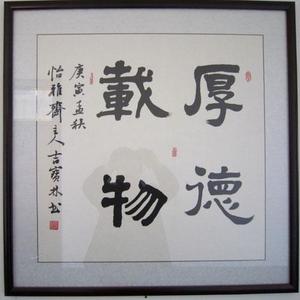 厚德
載物
庚寅孟秋
怡雅齋主人吉寶林书